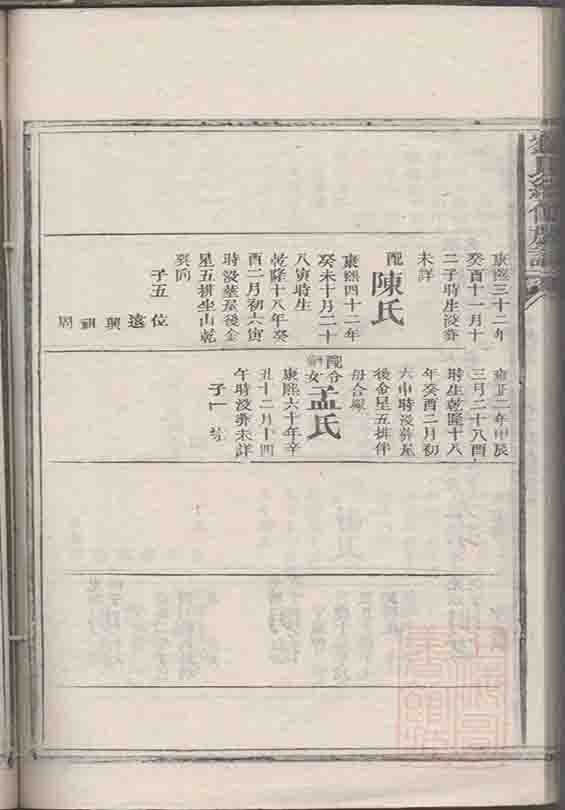 氏
修族譜
康熙三十二年
癸酉十一月十
二子時生没葬
未詳
配陳氏
康熙四十二年
癸未十月二十
八寅時生
乾隆十八年癸
酉二月初六寅
時没葬屋後金
星五排坐山乾
巽向
子五 位 遠 興 祖 周
雍正二年甲辰
三月二十八酉
時生乾隆十八
年癸酉二月初
六申時没葬屋
後金星五排伴
母合塚
配 女孟氏
康熙六十年辛
丑十二月十四
午時没葬未詳
子一